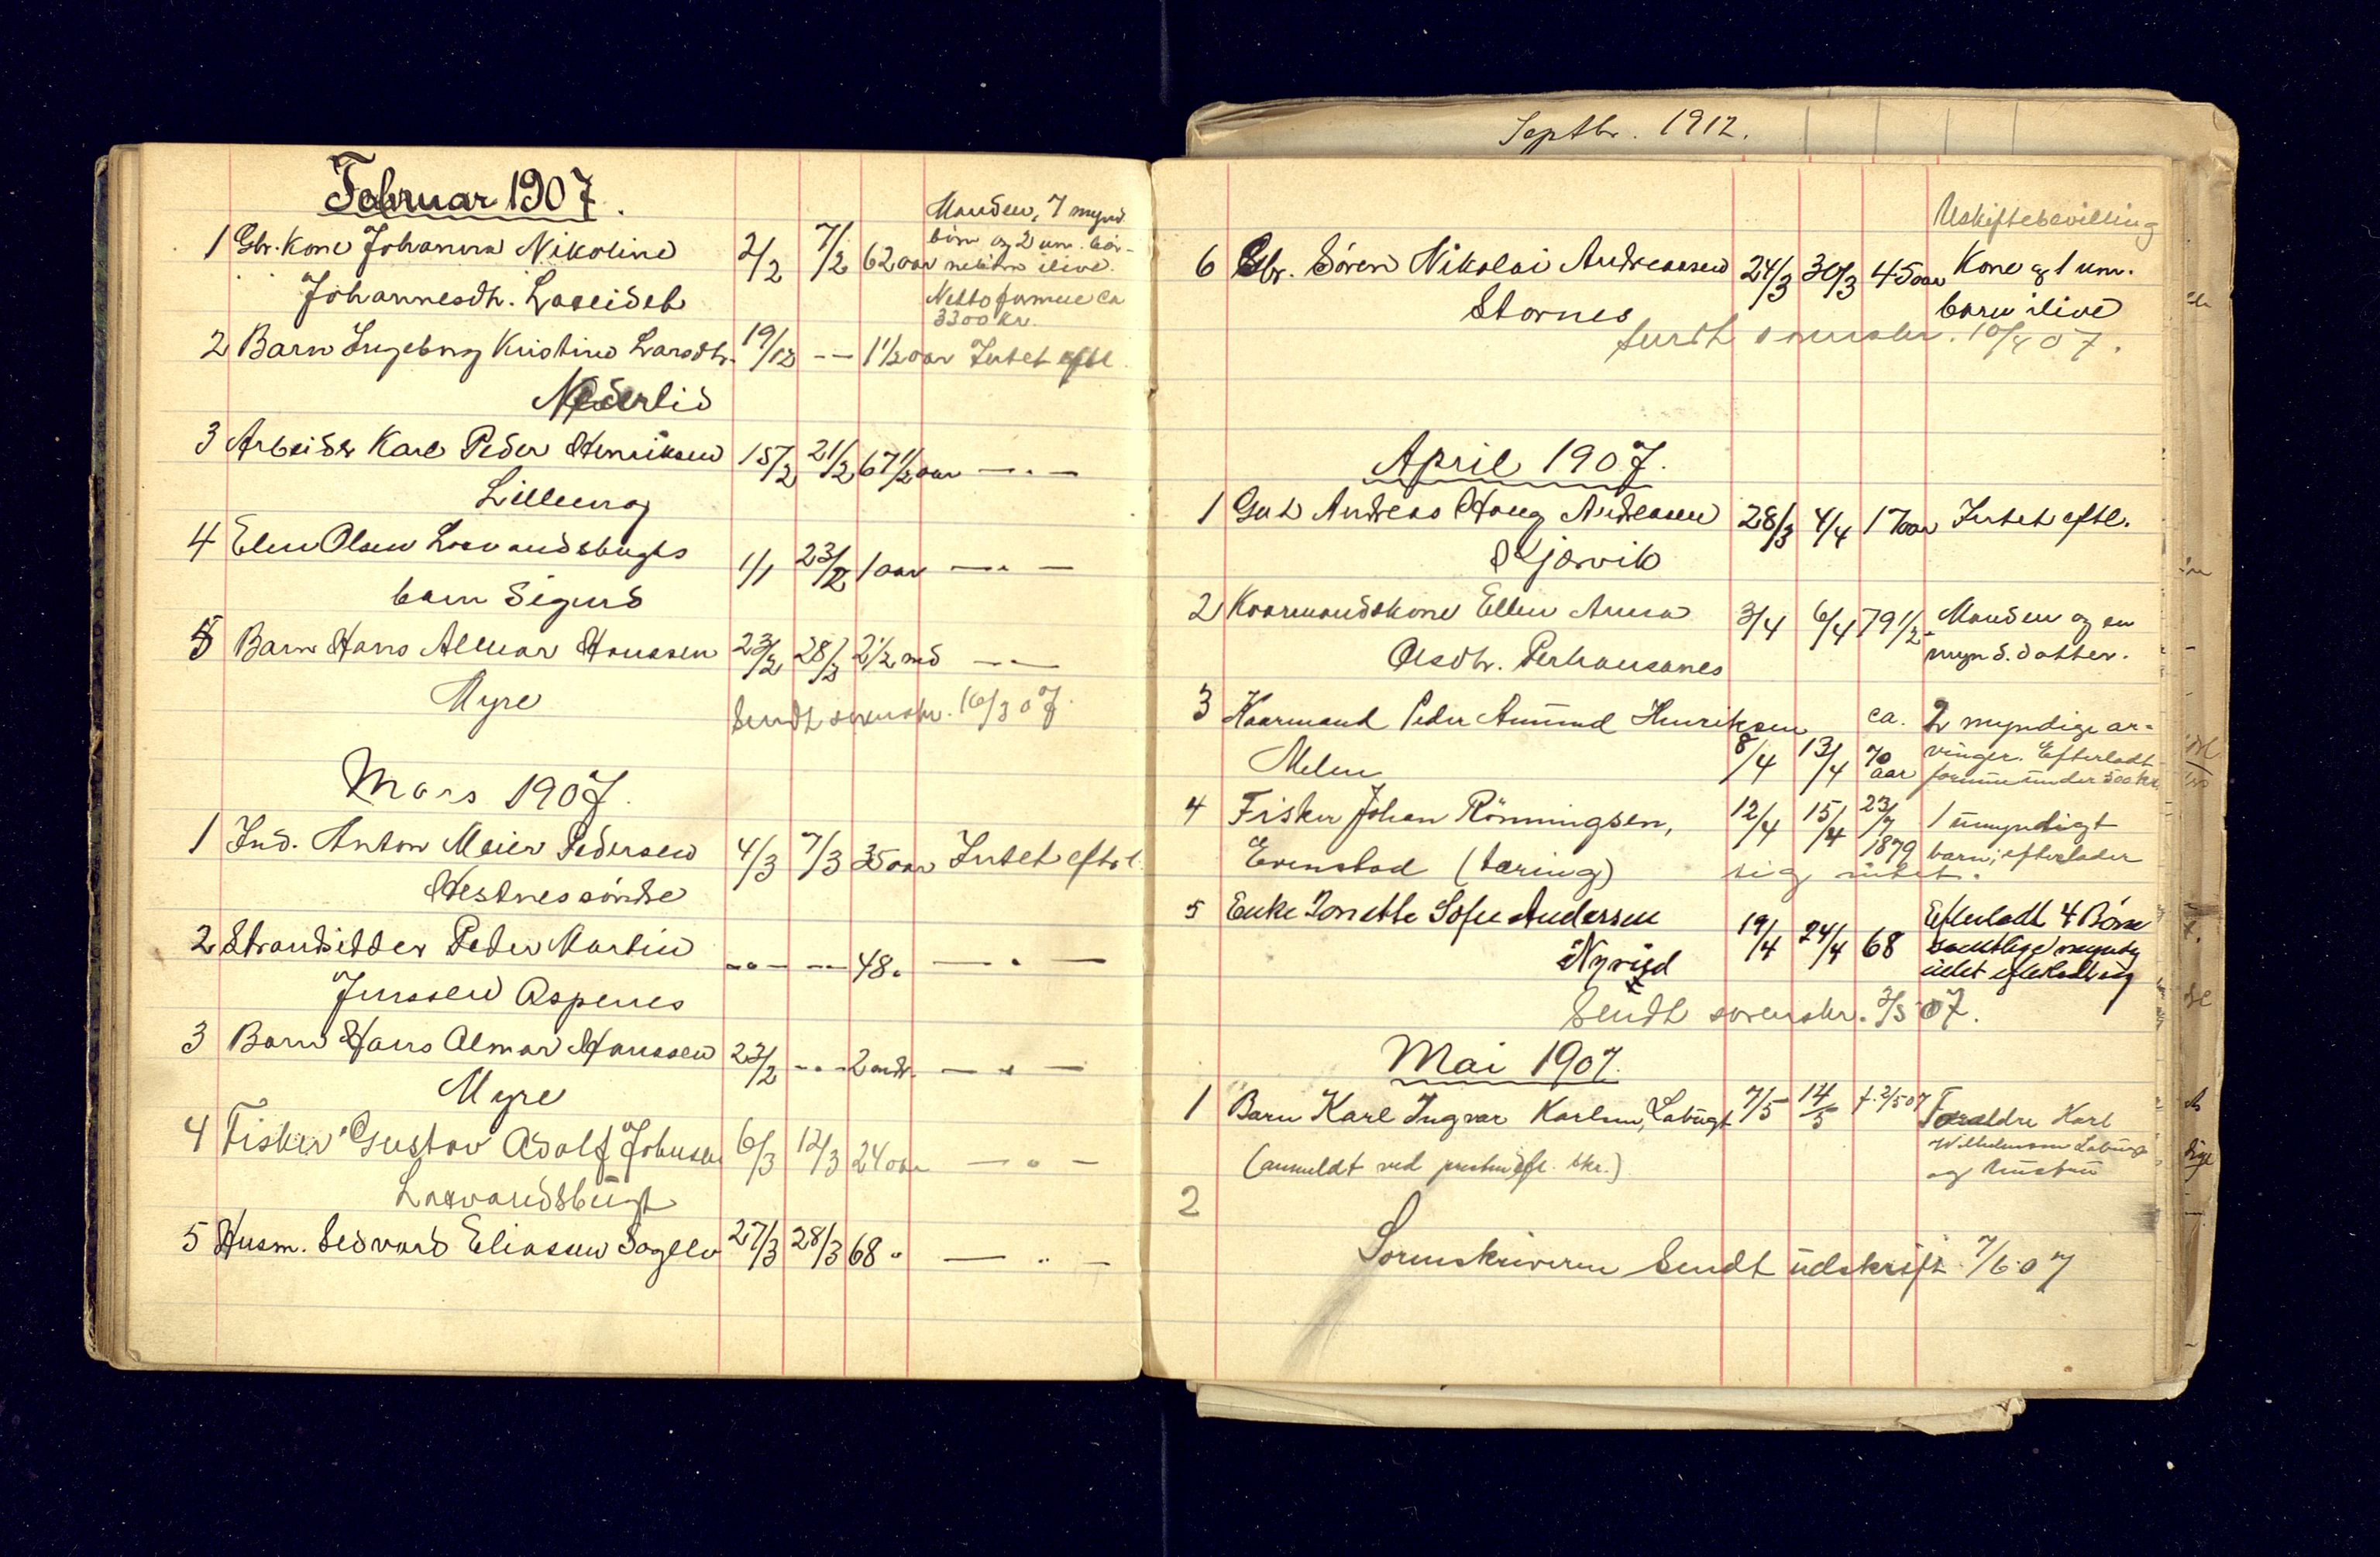 Februar 1907.
Manden, 7 mynd
børn og 2 um. bør-
1 Gbr. Kone Johanna Nikoline 2/2 7/2 62 aar nebørn ilive.
Johannesdtr. Lakseidet Netto formue ca
3300 kr.
2 Barn Ingeborg Kristine Larsdtr. 19/12 -- 1 1/2 aar Intet eftl
Nederlid
3 Arbeider Karl Peder Henriksen 15/2 21/2 67 1/2 aar — . —
4 Elen Olsen Laxvandsbugts 1/1 23/2 1 aar — " —
barn Sigurd
5 Barn Hans Almar Hanssen 23/2 28/2 2 1/2 md — " —
Myre
Sendt sorenskr. 16/3 07.
Mars 1907.
1 Ind. Anton Meier Pedersen 4/3 7/3 35 aar Intet eftl.
Hestnes søndre
2 Strandsidder Peder Martin -"- -"- 48 " — " —
Jenssen Aspenes
3 Barn Hans Almar Hanssen 23/2 -"- 2 mdr. — " —
Myre
4 Fisker Gustav Adolf Johnsen 6/3 12/3 24 aar — " —
Laxvandsbugt
5 Husm. Sedvard Eliassen Sagelv 27/3 28/3 68 " — " —
Septbr. 1912.
Uskiftebevilling
6 Gbr. Søren Nikolai Andreassen 24/3 30/3 45 aar Kone og 1 um.
Stornes barn ilive
sendt sorenskr. 10/4 07.
April 1907.
1 Gut Andreas Haug Andreasen 28/3 4/4 17 aar Intet eftl.
Skjærvik
2 Kaarmandskone Ellen Anna 3/4 6/4 79 1/2 - Manden og en
Olsdtr. Perhansanes mynd. datter.
3 Kaarmand Peder Amund Henriksen ca. 2 myndige ar-
Melen 8/4 13/4 70 aar vinger. Efterladt
formue under 500 kr.
4 Fisker Johan Rönningsen, 12/4 15/4 23/7 1879 1 umyndigt
Evenstad (tæring) barn; efterlader
sig intet.
5 Enke Jonette Sofie Andersen 19/4 24/4 68 Efterladt 4 Börn
samtlige myndig
intet efterladt sig
Sendt sorenskr. 3/5 07.
Mai 1907.
1 Barn Karl Ingvar Karlsen, Labugt 7/5 14/5 f. 2/5 07 Forældre Karl
Wilhelmsen Labugt
og hustru
2
Sorenskriveren Sendt udskrift 7/6 07